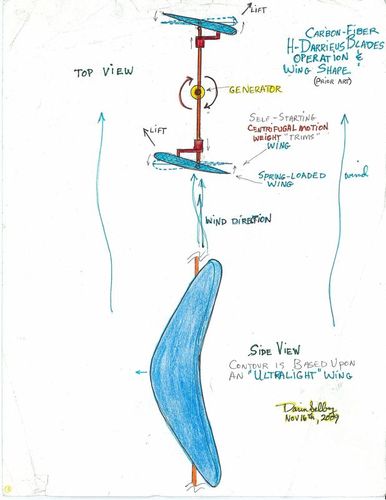 LIFT
CARBON-FIBER
H-DARRIEUS BLADES
OPERATION &
WING SHAPE
(PRIOR ART)
TOP VIEW
GENERATOR
SELF-STARTING
CENTRIFUGAL MOTION
WEIGHT "TRIMS"
WING
LIFT
SPRING-LOADED
WING
wind
WIND DIRECTION
SIDE VIEW
CONTOUR IS BASED UPON
AN "ULTRALIGHT" WING
Darin Selby
NOV 16th, 2009